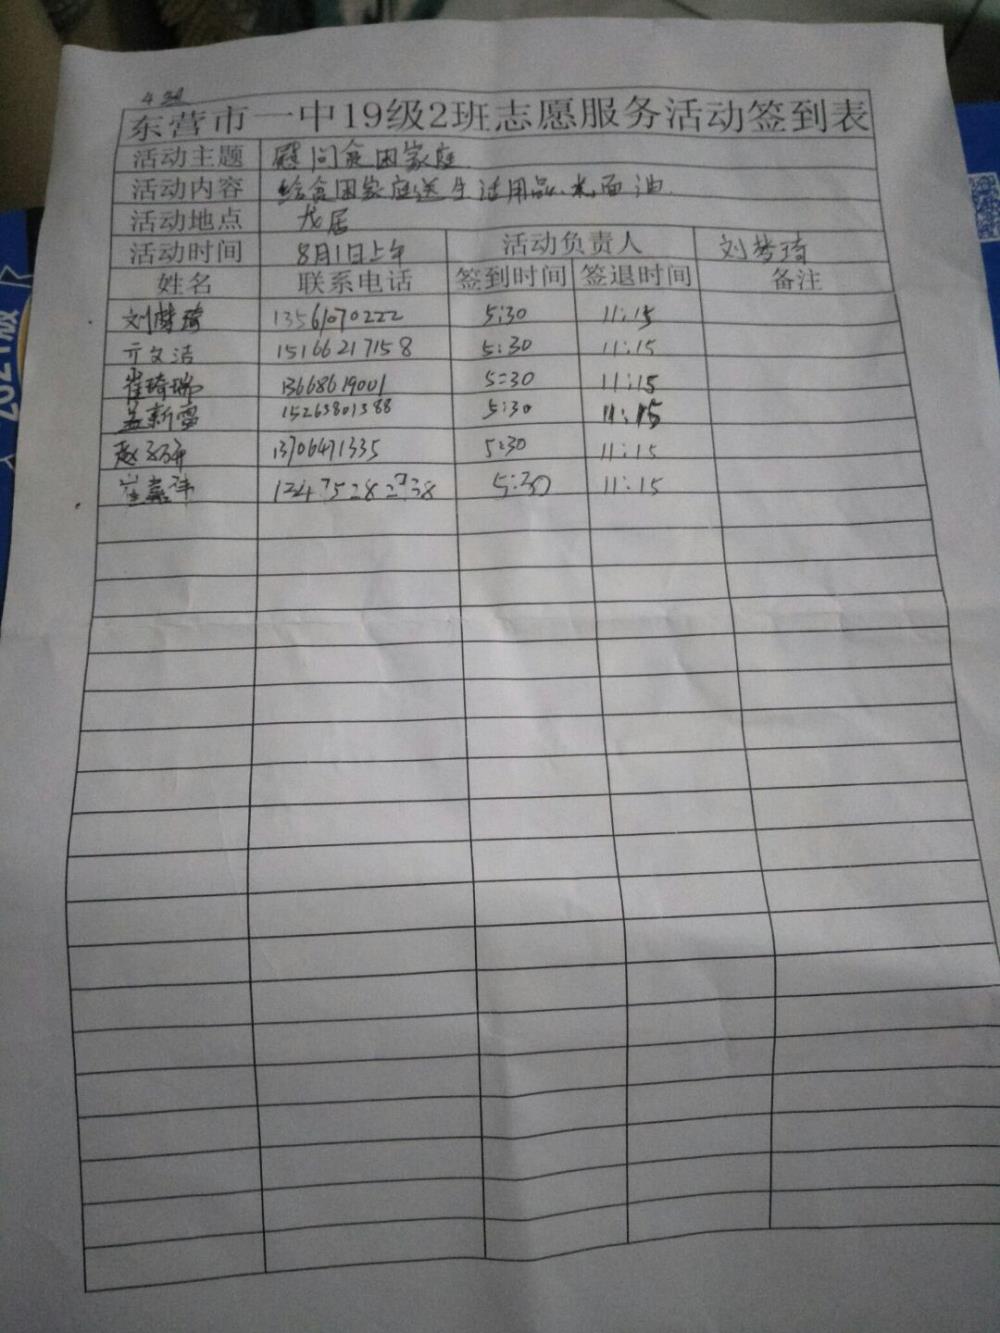 东营市一中19级2班志愿服务活动签到表
活动主题 慰问贫困家庭
活动内容 给贫困家庭送生活用品、米面油
活动地点 龙居
活动时间 8月1日上午 活动负责人 刘梦琦
姓名 联系电话 签到时间 签退时间 备注
刘梦琦 13561070222 5:30 11:15
亓文洁 15166217158 5:30 11:15
崔琦瑞 13668619001 5:30 11:15
孟新雷 15263801388 5:30 11:15
赵 13706471335 5:30 11:15
崔嘉祎 5:30 11:15
2021版